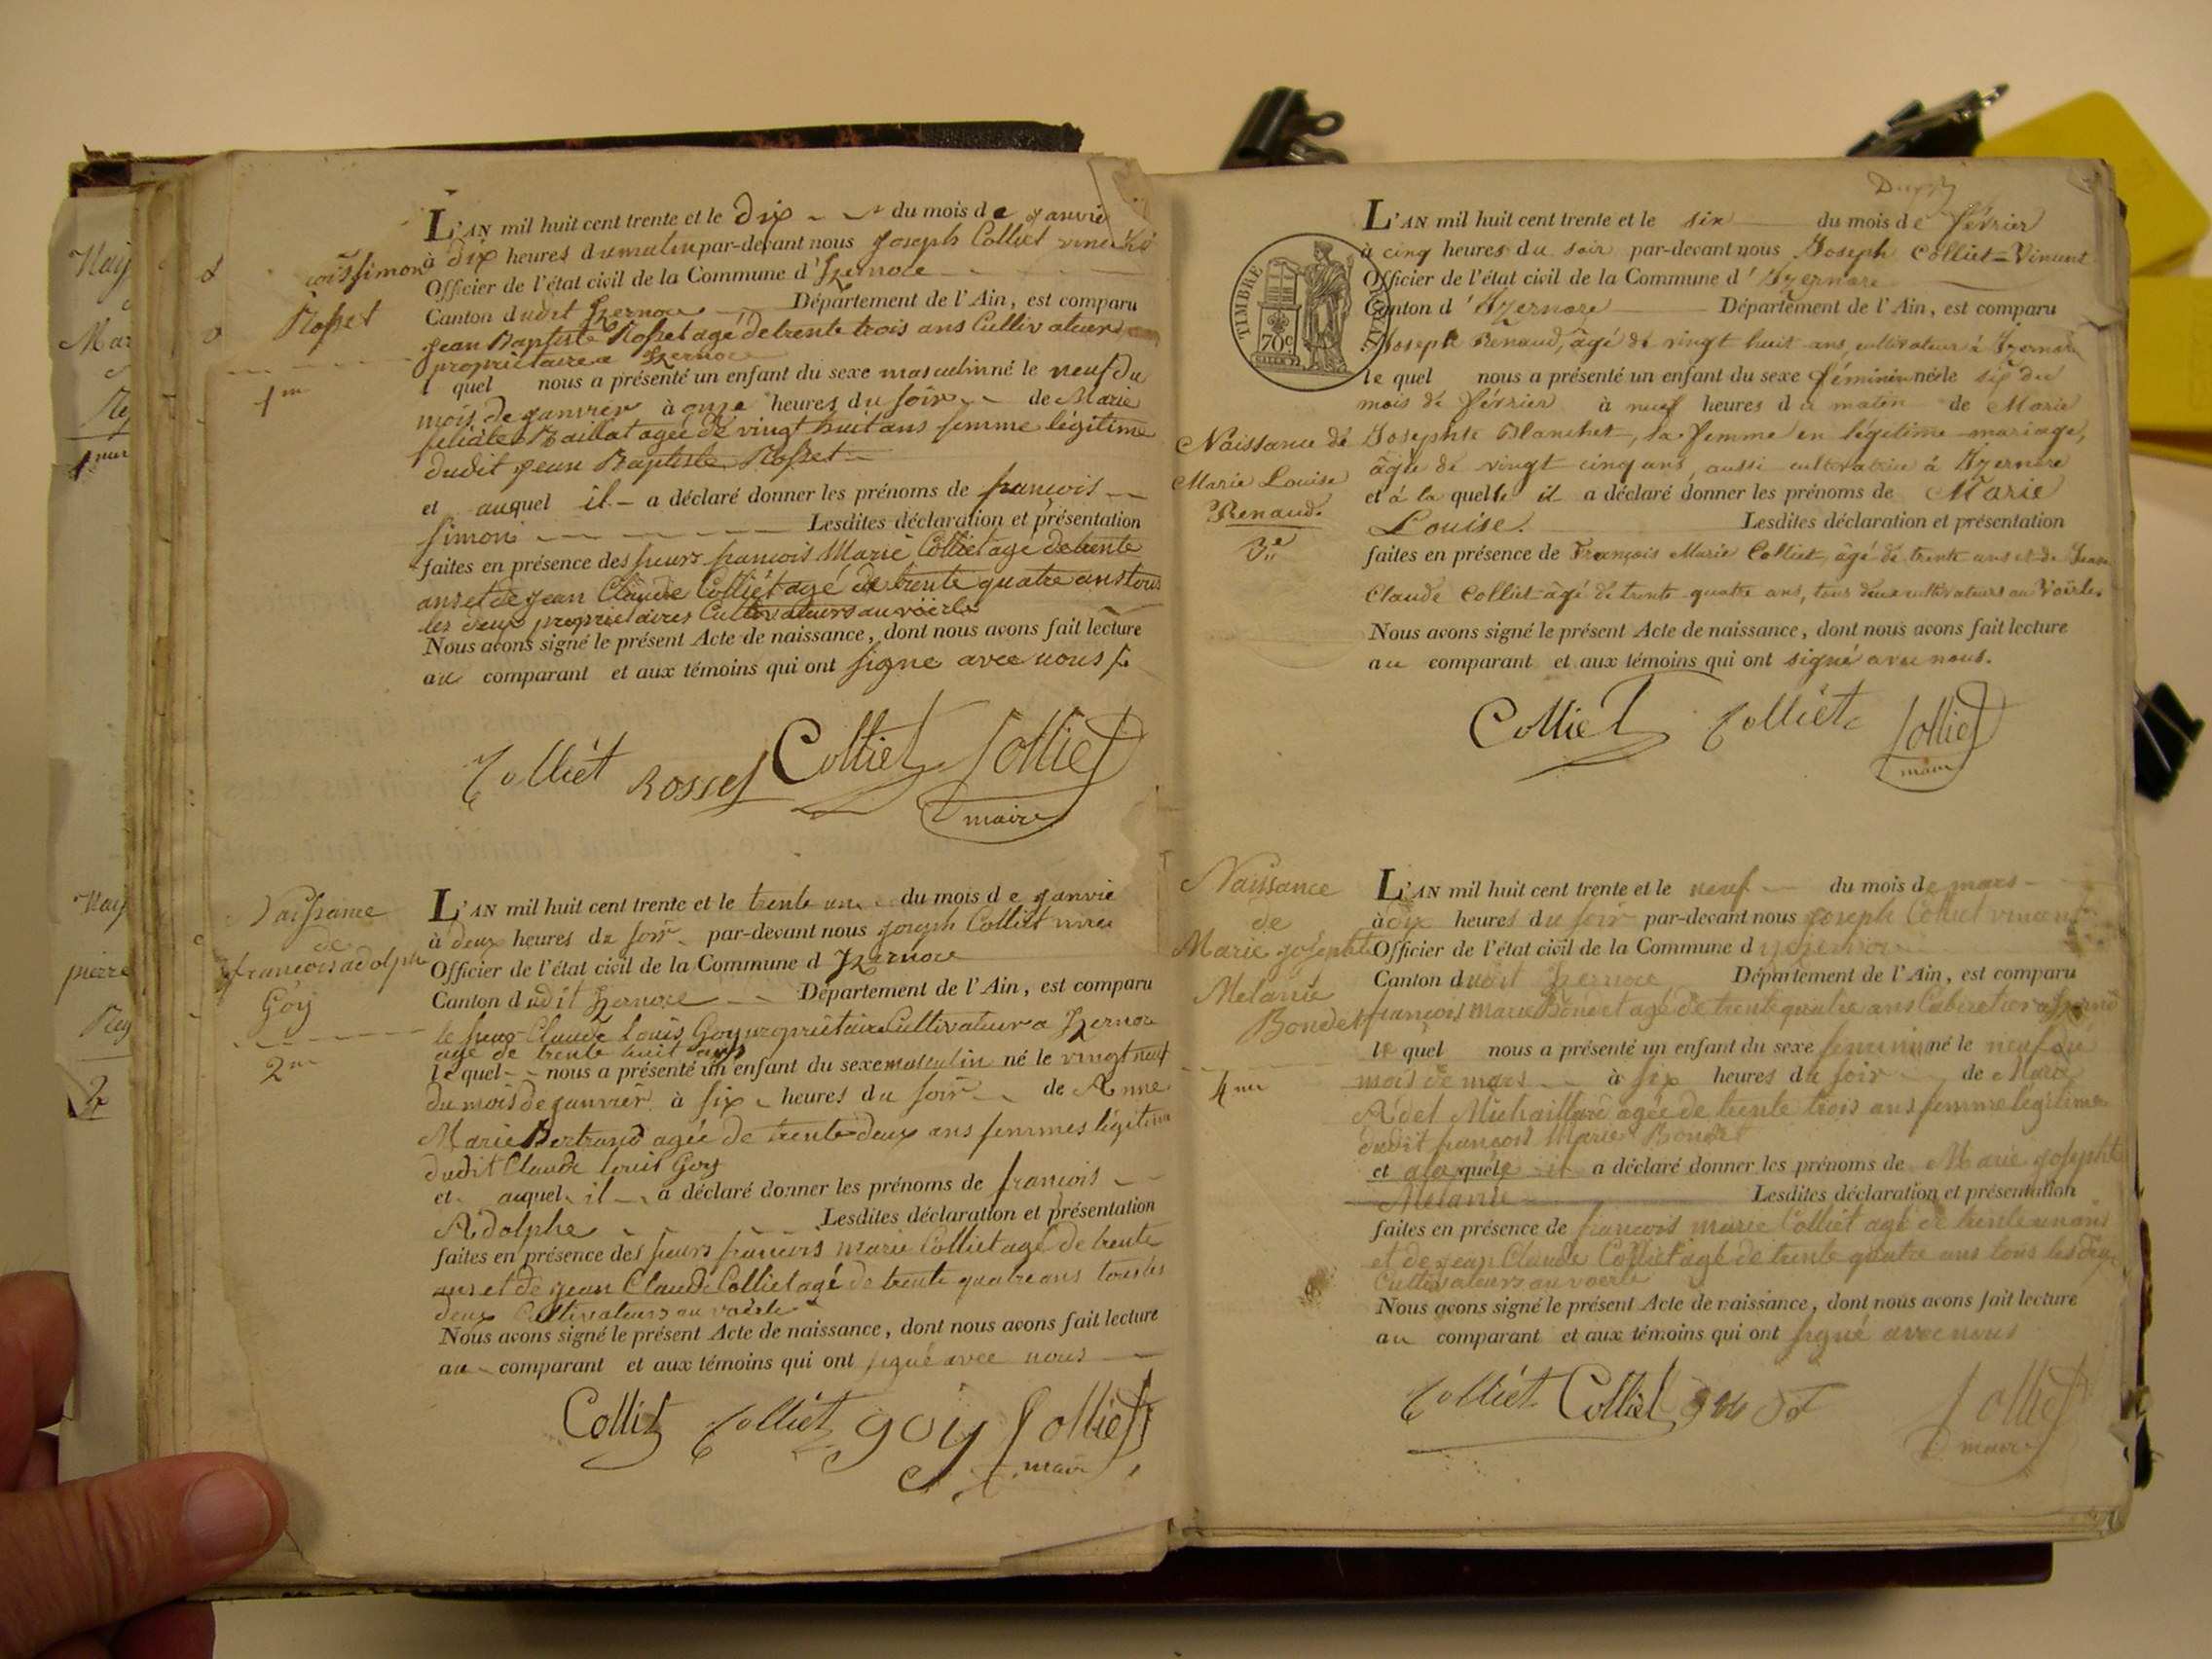 Rosset
1er
L'AN mil huit cent trente et le dix du mois de janvier
à dix heures du matin par-devant nous joseph Colliet
Officier de l'état civil de la Commune d'Izernore
Canton dudit Izernore Département de l'Ain, est comparu
jean Baptiste Rosset agé de trente trois ans Cultivateur
propriétaire a Izernore
l quel nous a présenté un enfant du sexe masculin né le neuf du
mois de janvier à onze heures du soir de Marie
Baillat agée de vingt huit ans femme légitime
dudit jean Baptiste Rosset
et auquel il a déclaré donner les prénoms de francois
simon Lesdites déclaration et présentation
faites en présence des sieurs francois Marie Colliet agé de trente
ans et de jean Claude Colliet agé de trente quatre ans tous
les deux propriétaires Cultivateurs au voerle
Nous avons signé le présent Acte de naissance, dont nous avons fait lecture
au comparant et aux témoins qui ont signe avec nous
Colliet Rosset Colliet Colliet
maire
Naissance
de
francois adolphe
Goy
2
L'AN mil huit cent trente et le trente un du mois de janvie
à deux heures du soir par-devant nous joseph Colliet
Officier de l'état civil de la Commune d Izernore
Canton dudit Izernore Département de l'Ain, est comparu
le sieur Claude Louis Goy propriétaire Cultivateur a Izernore
agé de trente huit ans
le quel nous a présenté un enfant du sexe masculin né le vingt neuf
du mois de janvier à six heures du soir de Anne
Marie Bertrand agée de trente deux ans femmes légitime
dudit Claude Louis Goy
et auquel il a déclaré donner les prénoms de francois
Adolphe Lesdites déclaration et présentation
faites en présence des sieurs francois marie Colliet agé de trente
ans et de jean Claude Colliet agé de trente quatre ans tous les
deux Cultivateurs au voerle
Nous avons signé le présent Acte de naissance, dont nous avons fait lecture
au comparant et aux témoins qui ont signé avec nous
Colliet Colliet goy Colliet
maire
TIMBRE
70c
L'AN mil huit cent trente et le six du mois de février
à cinq heures du soir par-devant nous Joseph Colliet-Vincent
Officier de l'état civil de la Commune d'Izernore
Canton d'Izernore Département de l'Ain, est comparu
Joseph Renaud, âgé de vingt huit ans, cultivateur à Izernore
le quel nous a présenté un enfant du sexe féminin né le six du
mois de février à neuf heures du matin de Marie
Josephte Blanchet, sa femme en légitime mariage,
âgée de vingt cinq ans, aussi cultivatrice à Izernore
et à la quelle il a déclaré donner les prénoms de Marie
Louise. Lesdites déclaration et présentation
faites en présence de François Marie Colliet, âgé de trente ans et de Jean
Claude Colliet âgé de trente quatre ans, tous deux cultivateurs au Voërle.
Nous avons signé le présent Acte de naissance, dont nous avons fait lecture
au comparant et aux témoins qui ont signé avec nous.
Colliet Colliet Colliet
maire
Naissance de
Marie Louise
Renaud.
3e
Naissance
de
Marie josephte
Melanie
Bondet
L'AN mil huit cent trente et le neuf du mois de mars
à dix heures du soir par-devant nous joseph Colliet vincent
Officier de l'état civil de la Commune d
Canton dudit Izernore Département de l'Ain, est comparu
francois marie Bondet agé de trente quatre ans
le quel nous a présenté un enfant du sexe feminin né le neuf du
mois de mars à six heures du soir de Marie
agée de trente trois ans femme legitime
dudit francois Marie Bondet
et a la quéle il a déclaré donner les prénoms de Marie josephte
Melanie Lesdites déclaration et présentation
faites en présence de francois marie Colliet agé de trente un ans
et de jean Claude Colliet agé de trente quatre ans tous les deux
Cultivateurs au voerle
Nous avons signé le présent Acte de naissance, dont nous avons fait lecture
au comparant et aux témoins qui ont signé avec nous
Colliet Colliet Colliet
maire